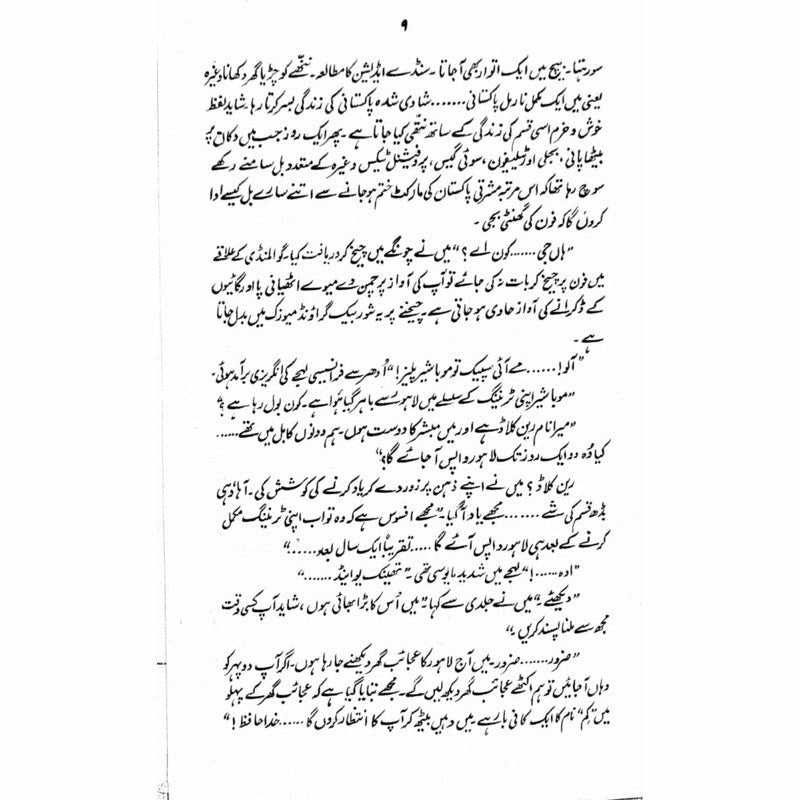 ۹
سو رہتا۔ بیچ میں ایک اتوار بھی آ جاتا ۔ سنڈے ایڈیشن کا مطالعہ ۔ ننھے کو چڑیا گھر دکھانا وغیرہ
یعنی میں ایک مکمل نارمل پاکستانی ....... شادی شدہ پاکستانی کی زندگی بسر کرتا رہا۔ شاید لفظ
خوش و خرم اسی قسم کی زندگی کے ساتھ نتھی کیا جاتا ہے ۔ پھر ایک روز جب میں دکان پر
بیٹھا پانی ، بجلی اور ٹیلیفون ، سوئی گیس ، پروفیشنل ٹیکس وغیرہ کے متعدد بل سامنے رکھے
سوچ رہا تھا کہ اس مرتبہ مشرقی پاکستان کی مارکٹ ختم ہو جانے سے اتنے سارے بل کیسے ادا
کروں گا کہ فون کی گھنٹی بجی ۔
"ہاں جی ....... کون اے ؟" میں نے چونگے میں چیخ کر دریافت کیا۔ گوالمنڈی کے علاقے
میں فون پر چیخ کر بات نہ کی جائے تو آپ کی آواز پر چمن دے میوے اٹھیانی پا اور گائیوں
کے ڈکرانے کی آواز حاوی ہو جاتی ہے ۔ چیخنے پر یہ شور بیک گراؤنڈ میوزک میں بدل جاتا
ہے ۔
"آلو! ...... مے آئی سپیک تو موباشیر پلیز!" اُدھر سے فرانسیسی لہجے کی انگریزی برآمد ہوئی۔
"موباشیر اپنی ٹریننگ کے سلسلے میں لاہور سے باہر گیا ہُوا ہے۔ کون بول رہا ہے ؟"
"میرا نام رین کلاڈ ہے اور میں مبشر کا دوست ہوں۔ ہم دونوں کابل میں تھے ......
کیا وُہ دو ایک روز تک لاہور واپس آ جائے گا؟"
رین کلاڈ ؟ میں نے اپنے ذہن پر زور دے کر یاد کرنے کی کوشش کی ۔ آہا وہی
بڈھ قسم کی شے ....... مجھے یاد آ گیا۔ "مجھے افسوس ہے کہ وہ تو اب اپنی ٹریننگ مکمل
کرنے کے بعد ہی لاہور واپس آئے گا ..... تقریباً ایک سال بعد ......"
"اوہ ......!" لہجے میں شدید مایوسی تھی ۔ "تھینک یو اینڈ ......."
"دیکھئے ۔" میں نے جلدی سے کہا "میں اُس کا بڑا بھائی ہوں ، شاید آپ کسی وقت
مجھ سے ملنا پسند کریں ۔"
"ضرور ....... ضرور۔ میں آج لاہور کا عجائب گھر دیکھنے جا رہا ہوں۔ اگر آپ دوپہر کو
وہاں آ جائیں تو ہم اکٹھے عجائب گھر دیکھ لیں گے۔ مجھے بتایا گیا ہے کہ عجائب گھر کے پہلو
میں "کِم" نام کا ایک کافی بار ہے میں وہیں بیٹھ کر آپ کا انتظار کروں گا ...... خدا حافظ !"